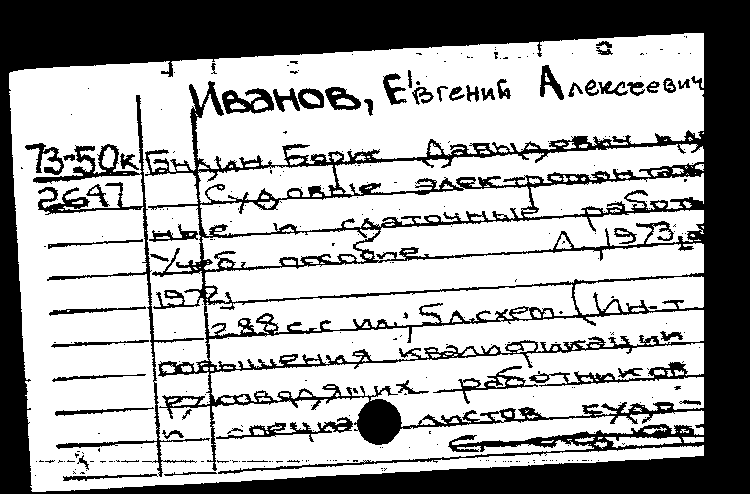 Иванов, Евгений Алексеевич
73-50к Гендин, Борис Давыдович и др
2647 Судовые электромонтаж
ные и сдаточные работы
Учеб. пособие. Л, 1973, об
1972.
288 с. с ил.; 5 л. схем. (Ин-т
повышения квалификации
руководящих работников
и специалистов судо-
карт